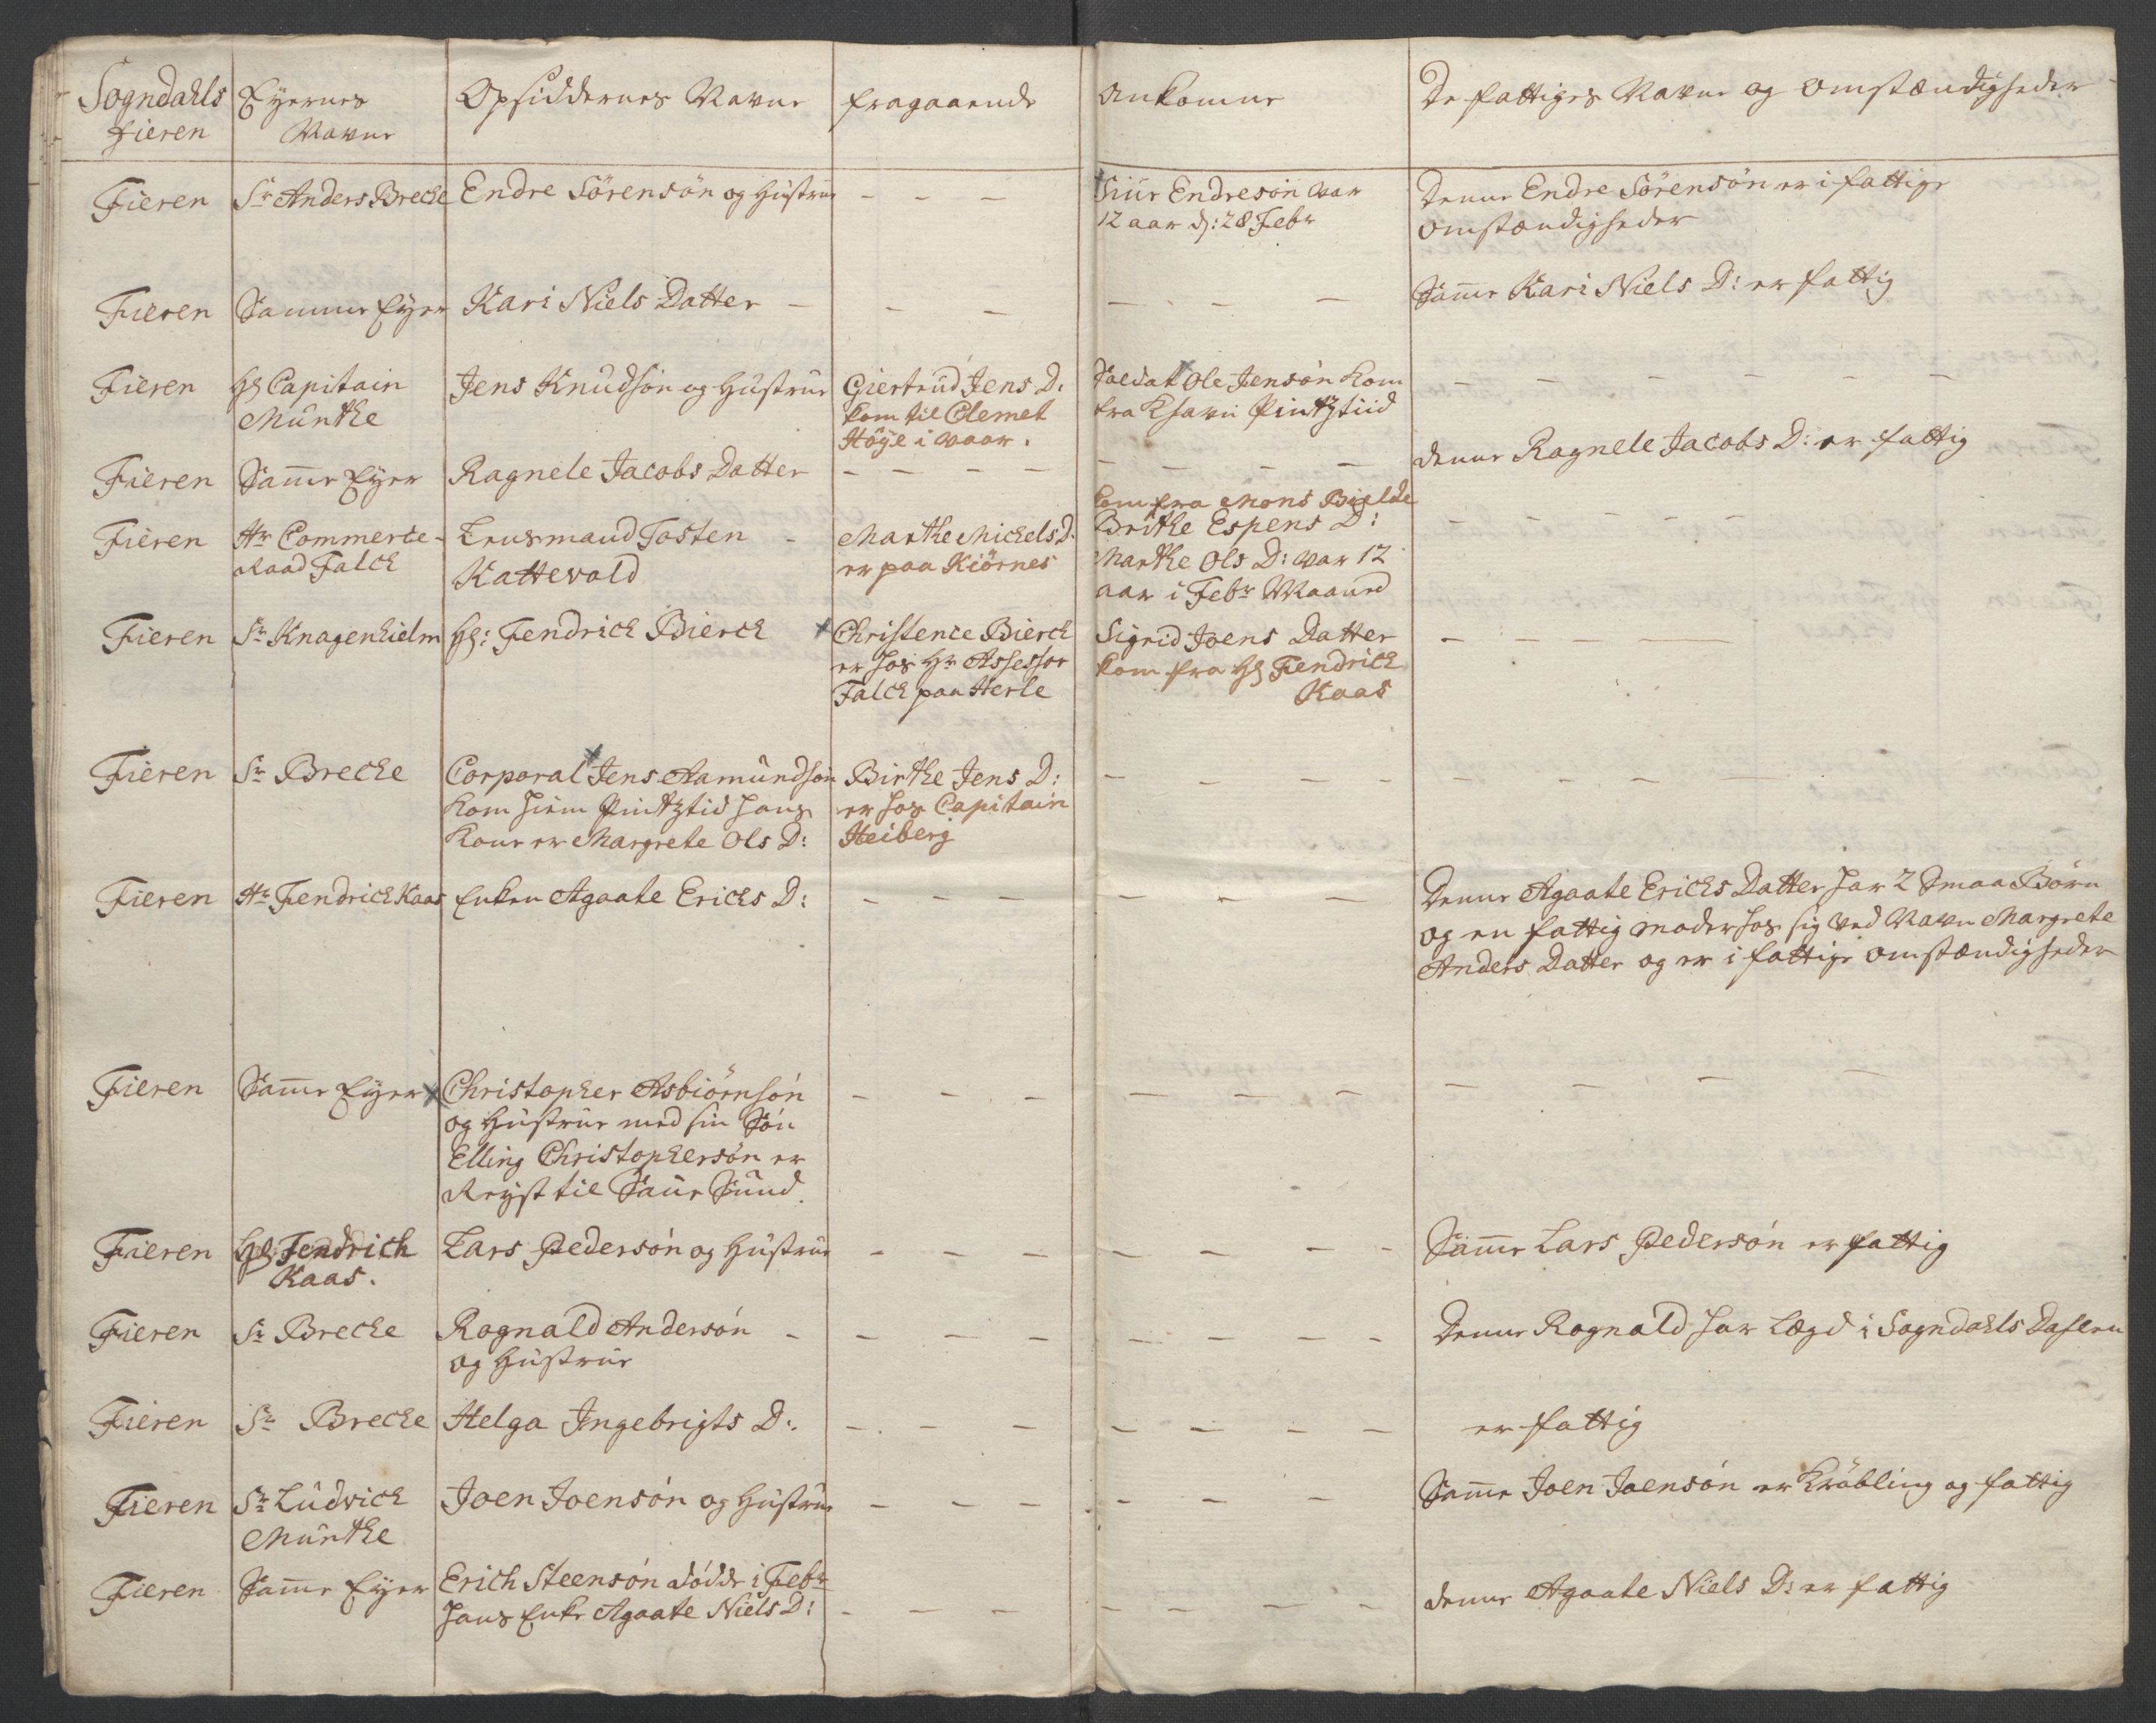 Sogndahls Eyernes Opsiddernes Navne fragaaende ankomne De fattiges Navne og omstændigheder
Fieren Navne
Fieren Sr Anders Brecke Endre Sörensön og Hustrue - - - Siur Endresön var Denne Endre Sörensön er i fattige
12 aar d: 28 Febr omstændigheder
Fieren Samme Eyer Kari Niels Datter - - - - - - Samme Kari Niels D: er fattig
Fieren Hr Capitain Jens Knudsön og Hustrue Giertrud Jens D. Soldat Ole Jensön kom - - - - - -
Munthe kom til Clemet fra Khavn Pintztiid
Höye i vaar.
Fieren Samme Eyer Ragnele Jacobs Datter - - - - - - - - denne Ragnele Jacobs D: er fattig
kom fra Mons Bielde
Fieren Hr Commerce- Lensmand Tosten - Marthe Mickels D. Brithe Espens D: - - - - - -
Raad Falck Kattevold er paa Kiörnes Marthe Ols D: var 12
aar i Febr Maaned
Fieren Sr Knagenhielm Hr: Fendrick Bierck Christence Bierck Sigrid Joens Datter - - - - -
er hos Hr Assessor kom fra Hr Fendrick
Falck paa Herle Kaas
Fieren Sr Brecke Corporal Jens Aamundsön Birthe Jens D: - - - - - - - -
kom hiem Pintztid hans er hos Capitain
kone er Margrete Ols D: Heiberg
Fieren Hr Fendrick Kaas Enken Agaate Ericks D: - - - - - - Denne Agaate Ericks Datter har 2 Smaa Börn
og en fattig moder hos sig ved Navn Margrete
Anders Datter og er i fattige omstændigheder
Fieren Samme Eyer Christopher Asbiörnsön - - - - - - - - - -
og Hustrue med sin Sön
Elling Christophersön er
Reyst til Saue Sund.
Fieren Hr Fendrich Lars Pedersön og Hustrue - - - - - - - Samme Lars Pedersön er fattig
Kaas.
Fieren Sr Brecke Rognald Andersön - - - - - - - - Denne Rognald har Lægd i Sogndahls Dahlen
og Hustrue
Fieren Sr Brecke Helga Ingebrigts D: - - - - - - - er fattig
Fieren Sr Ludvick Joen Joensön og Hustrue - - - - - - Samme Joen Joensön er Kröbling og fattig
Munthe
Fieren Samme Eyer Erich Steensön dödde i Febr
hans Enke Agaate Niels D: - - - - - - - denne Agaate Niels D: er fattig